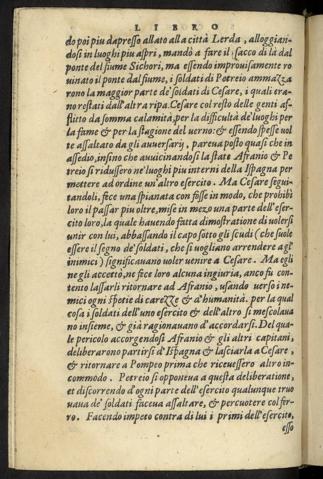 LIBRO
do poi piu dapresso allato alla città Lerda, alloggian-
dosi in luoghi piu aspri, mandò a fare il sacco di la dal
ponte del fiume Sichori, ma essendo improuisamente ro
uinato il ponte dal fiume, i soldati di Petreio ammazza
rono la maggior parte de' soldati di Cesare, i quali era-
no restati dall'altra ripa. Cesare col resto delle genti af-
flitto da somma calamità, per la difficultà de' luoghi per
la fame & per la stagione del uerno: & essendo spesse uol
te assaltato da gli auuersarij, pareua posto quasi che in
assedio, insino che auuicinandosi la state Afranio & Pe
treio si ridussero ne' luoghi piu interni della Ispagna per
mettere ad ordine un'altro esercito. Ma Cesare segui-
tandoli, fece una spianata con fosse in modo, che prohibì
loro il passar piu oltre, mise in mezo una parte dell'eser-
cito loro, la quale hauendo fatta dimostratione di uolersi
unir con lui, abbassando il capo sotto gli scudi (che suole
essere il segno de' soldati, che si uogliano arrendere a gl'
inimici) significauano uoler uenire a Cesare. Ma egli
ne gli accettò, ne fece loro alcuna ingiuria, anco fu con-
tento lassarli ritornare ad Afranio, usando uerso i ne-
mici ogni spetie di carezze & d'humanità. per la qual
cosa i soldati dell'uno esercito & dell'altro si mescolaua
no insieme, & già ragionauano d'accordarsi. Del qua-
le pericolo accorgendosi Afranio & gli altri capitani,
deliberarono partirsi d'Ispagna & lasciarla a Cesare,
& ritornare a Pompeo prima che riceuessero altro in-
commodo. Petreio si opponeua a questa deliberatione,
et discorrendo d'ogni parte dell'esercito qualunque truo
uaua de' soldati faceua assaltare, & percuotere col fer-
ro. Facendo impeto contra di lui i primi dell'esercito,
esso